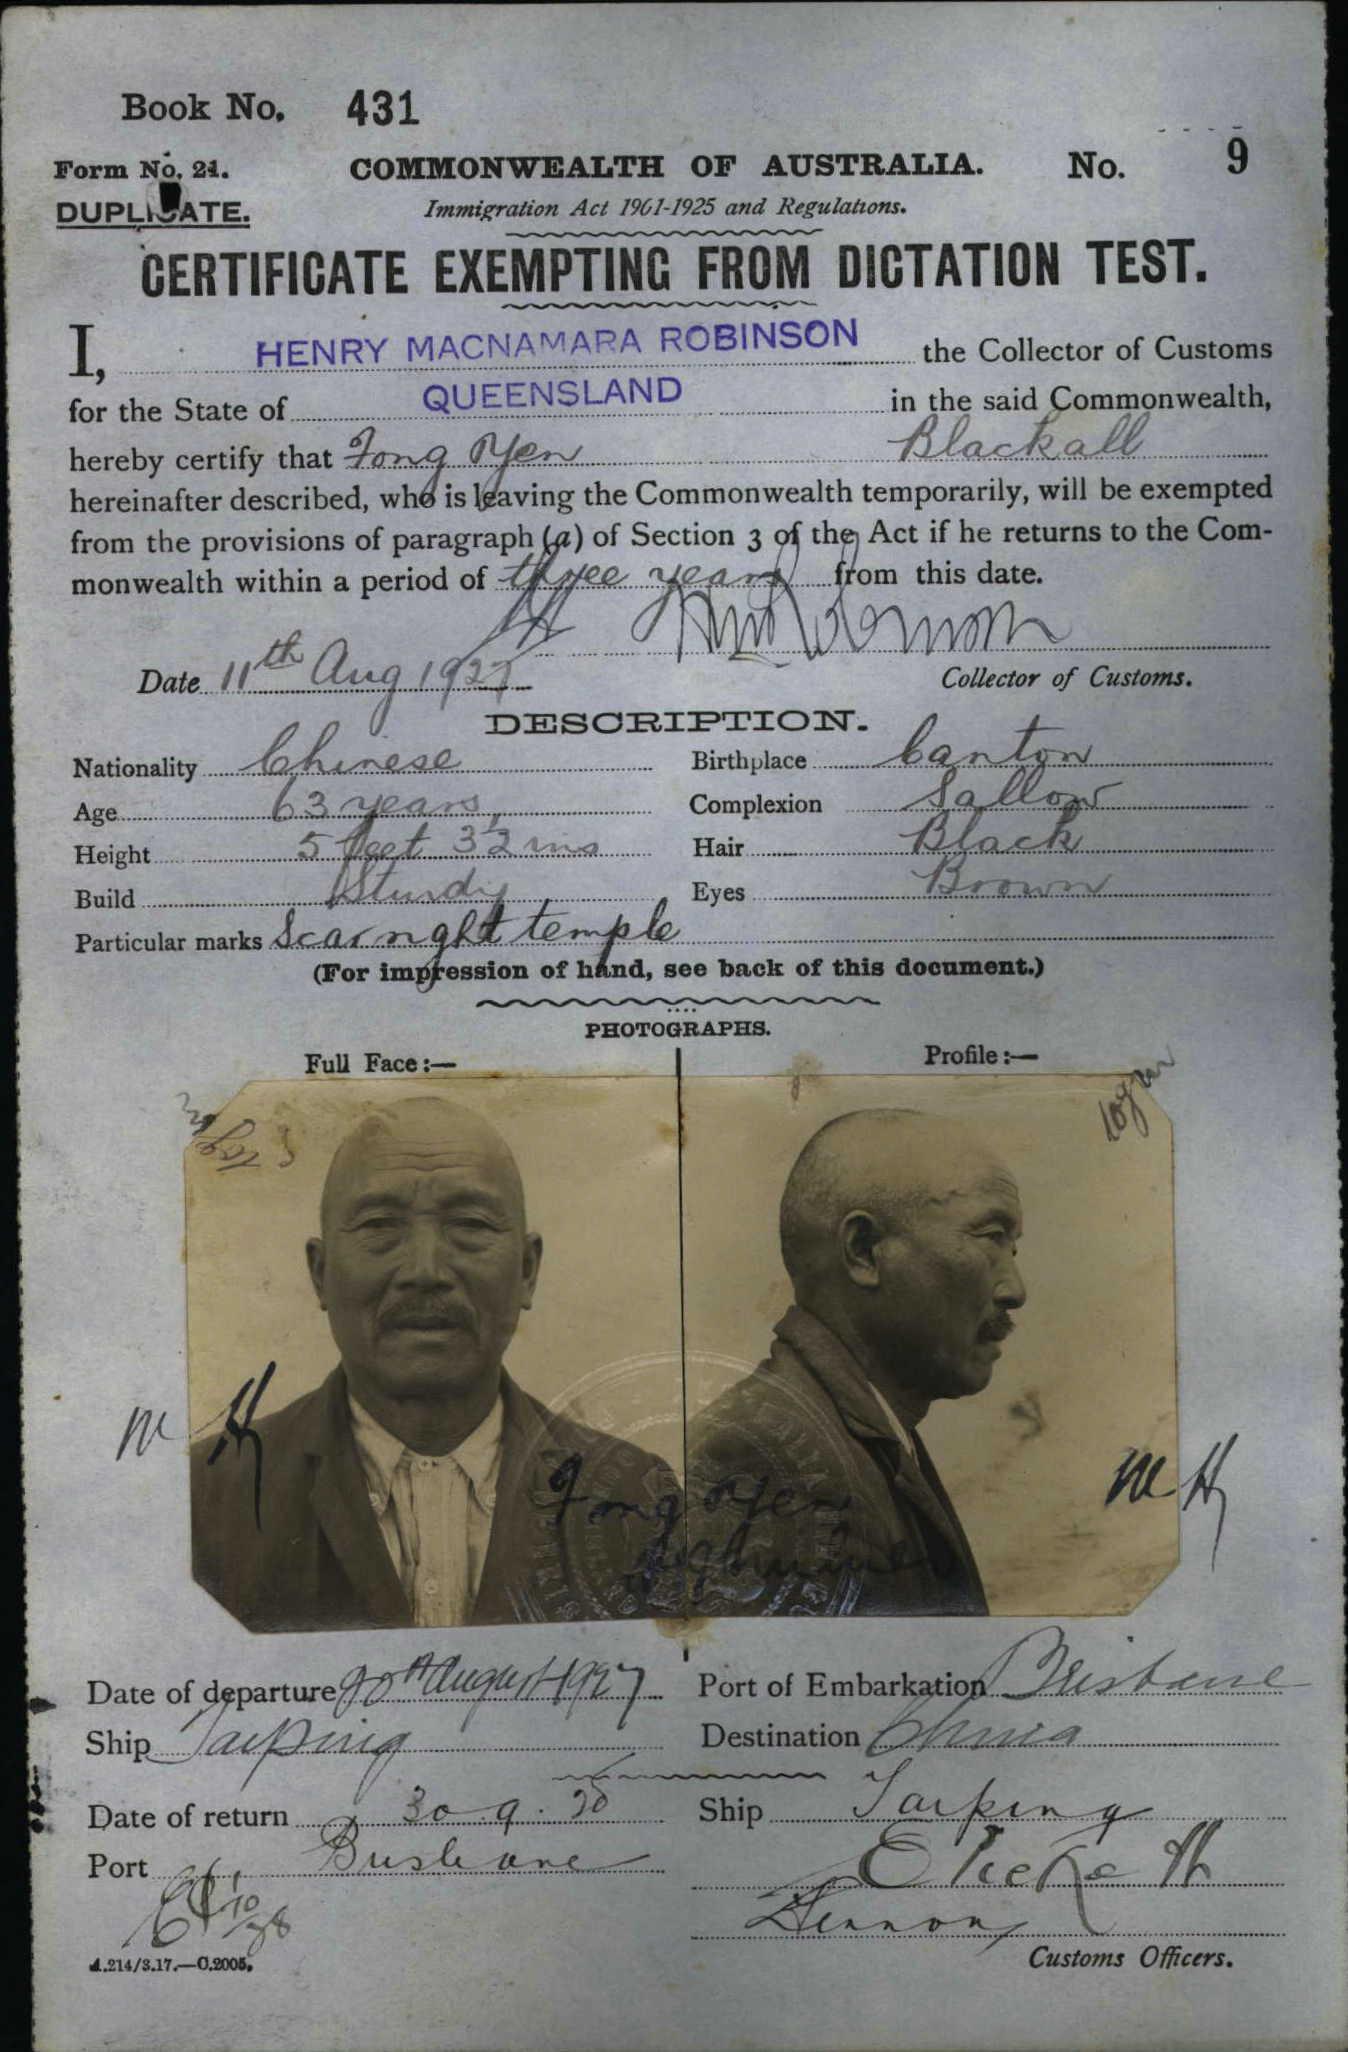 Book No. 431
Form No. 21. COMMONWEALTH OF AUSTRALIA. No. 9
DUPLICATE. Immigration Act 1901-1925 and Regulations.
CERTIFICATE EXEMPTING FROM DICTATION TEST.
I, HENRY MACNAMARA ROBINSON the Collector of Customs
for the State of QUEENSLAND in the said Commonwealth,
hereby certify that Fong Yen Blackall
hereinafter described, who is leaving the Commonwealth temporarily, will be exempted
from the provisions of paragraph (a) of Section 3 of the Act if he returns to the Com-
monwealth within a period of three years from this date.
Date 11th Aug 1927
Collector of Customs.
DESCRIPTION.
Nationality Chinese Birthplace Canton
Age 63 years Complexion Sallow
Height 5 feet 3½ ins Hair Black
Build Sturdy Eyes Brown
Particular marks Scar right temple
(For impression of hand, see back of this document.)
PHOTOGRAPHS.
Full Face:— Profile:—
Logan
M H
M H
Fong Yen
Date of departure 20th August 1927 Port of Embarkation Brisbane
Ship Taiping Destination China
Date of return 30.9. Ship Taiping
Port Brisbane
Customs Officers.
A.214/3.17.—C.2005.